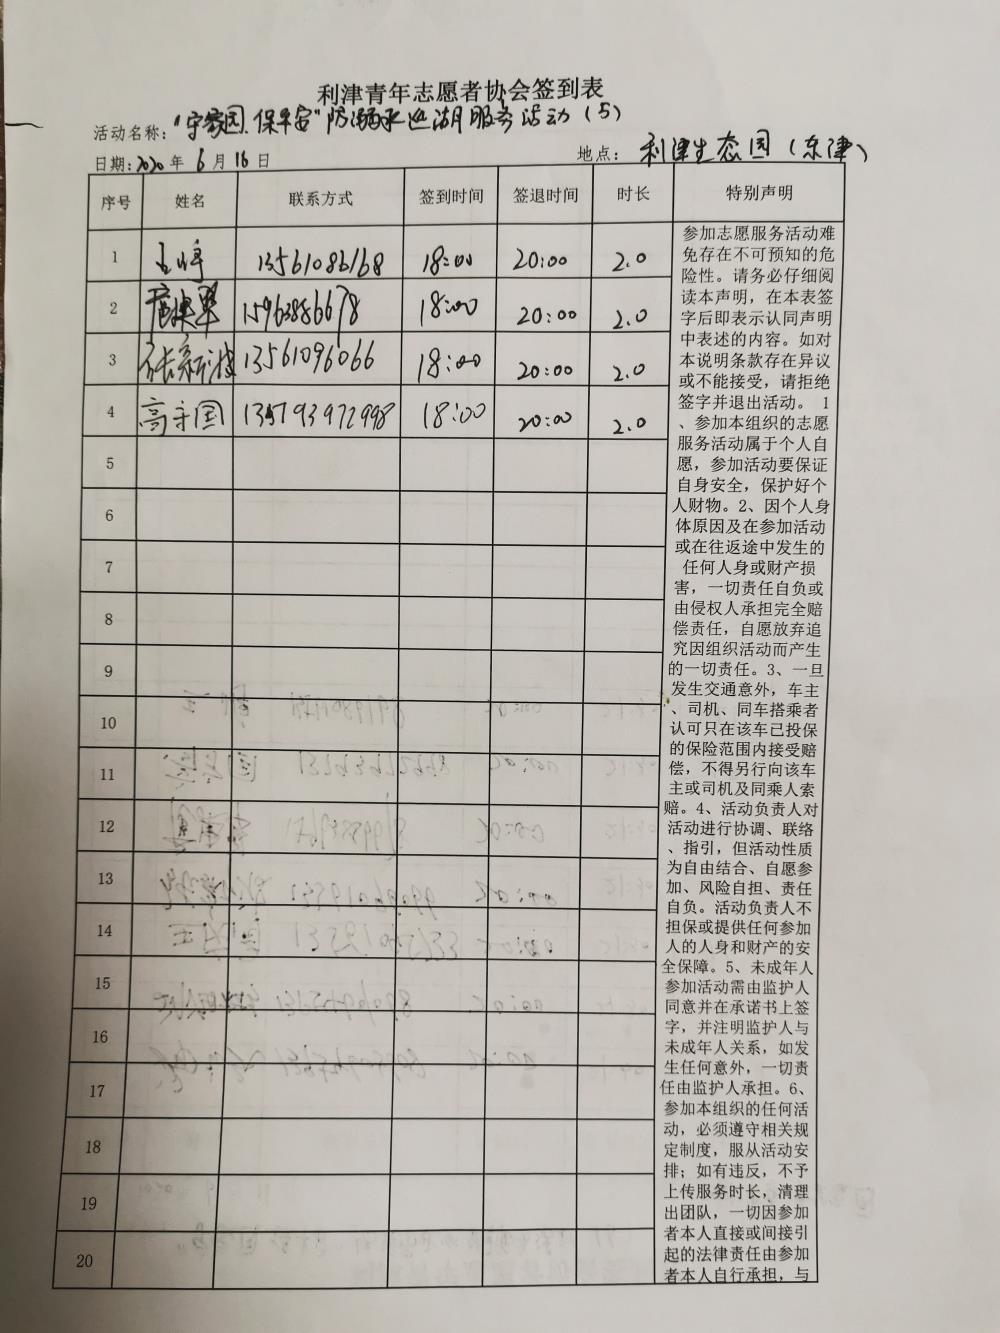 利津青年志愿者协会签到表
活动名称："守家园.保平安"防溺水巡湖服务活动（5）
日期:2020年6月16日 地点：利津生态园（东津）
序号 姓名 联系方式 签到时间 签退时间 时长 特别声明
1 13561086168 18:00 20:00 2.0
2 15963886678 18:00 20:00 2.0
3 张新波 13561096066 18:00 20:00 2.0
4 高守国 18:00 20:00 2.0
5
6
7
8
9
10
11
12
13
14
15
16
17
18
19
20
参加志愿服务活动难
免存在不可预知的危
险性。请务必仔细阅
读本声明，在本表签
字后即表示认同声明
中表述的内容。如对
本说明条款存在异议
或不能接受，请拒绝
签字并退出活动。 1
、参加本组织的志愿
服务活动属于个人自
愿，参加活动要保证
自身安全，保护好个
人财物。2、因个人身
体原因及在参加活动
或在往返途中发生的
任何人身或财产损
害，一切责任自负或
由侵权人承担完全赔
偿责任，自愿放弃追
究因组织活动而产生
的一切责任。3、一旦
发生交通意外，车主
、司机、同车搭乘者
认可只在该车已投保
的保险范围内接受赔
偿，不得另行向该车
主或司机及同乘人索
赔。4、活动负责人对
活动进行协调、联络
、指引，但活动性质
为自由结合、自愿参
加、风险自担、责任
自负。活动负责人不
担保或提供任何参加
人的人身和财产的安
全保障。5、未成年人
参加活动需由监护人
同意并在承诺书上签
字，并注明监护人与
未成年人关系，如发
生任何意外，一切责
任由监护人承担。6、
参加本组织的任何活
动，必须遵守相关规
定制度，服从活动安
排；如有违反，不予
上传服务时长，清理
出团队，一切因参加
者本人直接或间接引
起的法律责任由参加
者本人自行承担，与